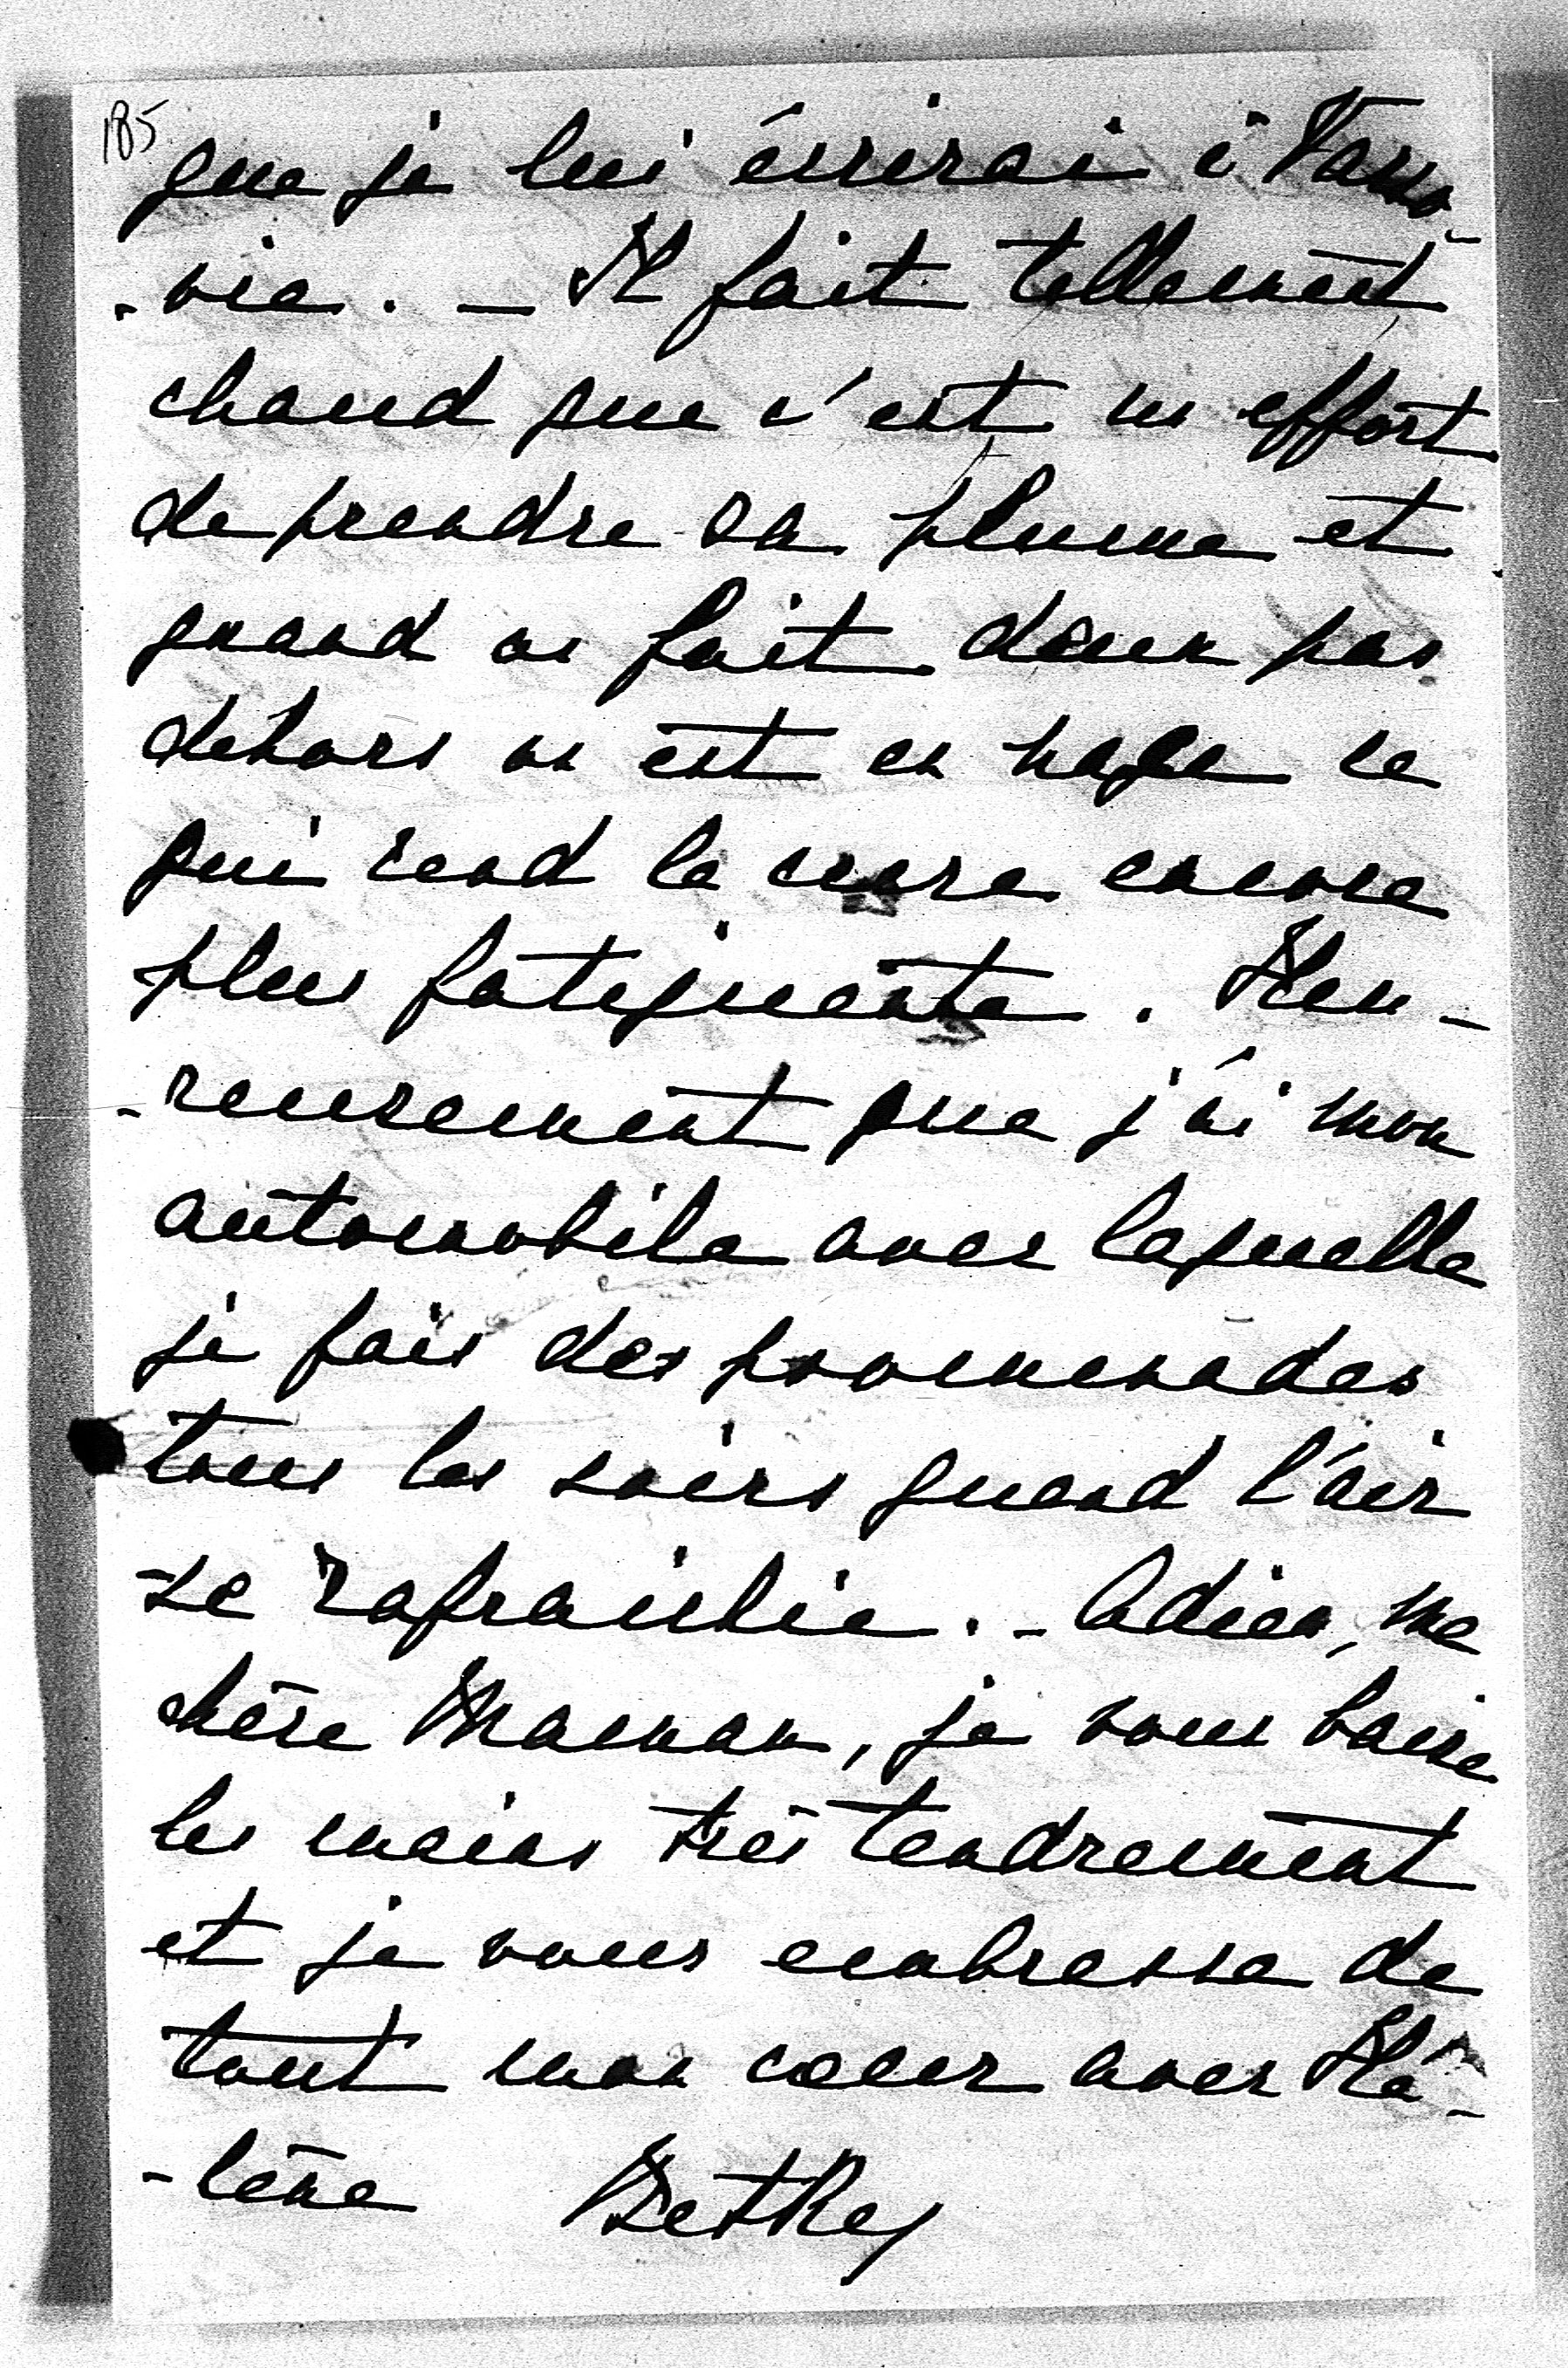 185
que je lui écrirai à Varso-
-vie. – Il fait tellement
chaud que c'est un effort
de prendre sa plume et
quand on fait deux pas
dehors on est en nage ce
qui rend la cure encore
plus fatiguante. Heu-
-reusement que j'ai mon
automobile avec laquelle
je fais des promenades
tous les soirs quand l'air
se rafraichie. - Adieu, ma
chère Maman, je vous baise
les mains très tendrement
et je vous embrasse de
tout mon cœur avec Hé-
-lène Betkey